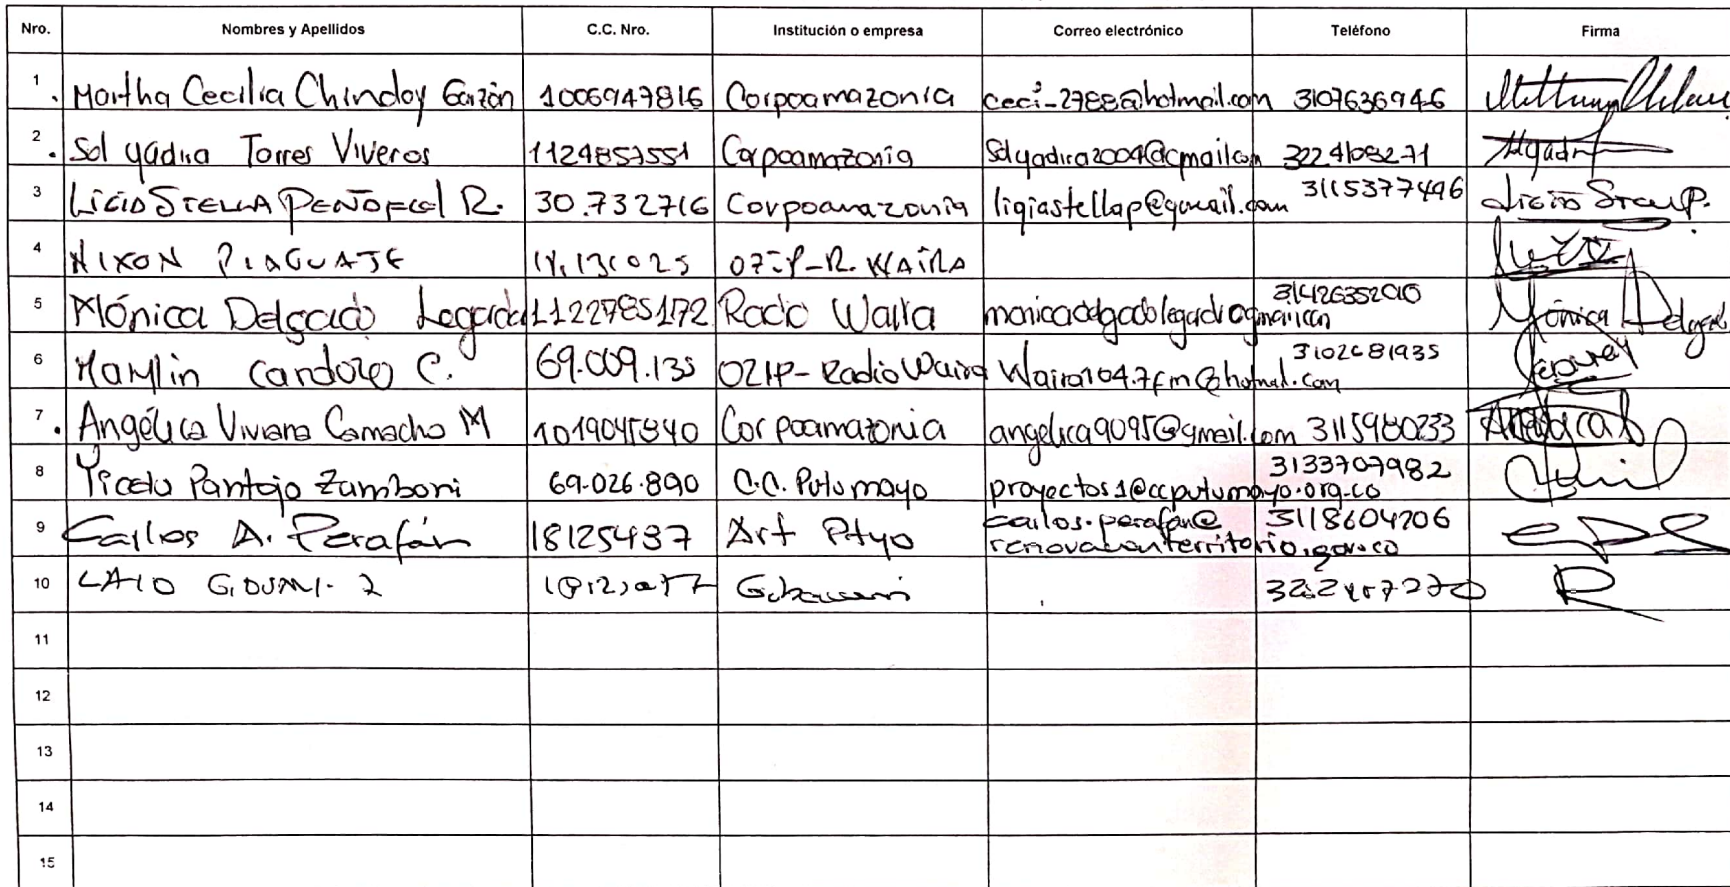 Nro. Nombres y Apellidos C.C. Nro. Institución o empresa Correo electrónico Teléfono Firma
1 . Martha Cecilia Chindoy Garzón 1006947816 Corpoamazonia ceci-2788@hotmail.com 3107636946
2 . Sol yadira Torres Viveros 1124857551 Corpoamazonia Solyadira2004@gmail.com
3 Ligia STELLA PEÑAFIEL R. 30.732716 Corpoamazonia ligiastellap@gmail.com 3115377496 Ligia Stella P.
4 NIXON PIAGUAJE
5 Mónica Delgado Legarda 1122785172 Radio Waira Mónica Delgado
6 Marylin Cardozo C. 69.009.135 OZIP- Radio Waira Waira104.7fm@hotmail.com 3102681935
7 . Angélica Viviana Camacho M Corpoamazonia angelica9095@gmail.com 3115980233 Angelica
8 Pantoja Zamboni 69.026.890 C.C. Putumayo proyectos1@ccputumayo.org.co 3133707982
9 Carlos A. Perafán 18125437 Art Ptyo carlos.perafan@ 3118604206
renovacionterritorio.gov.co
10
11
12
13
14
15